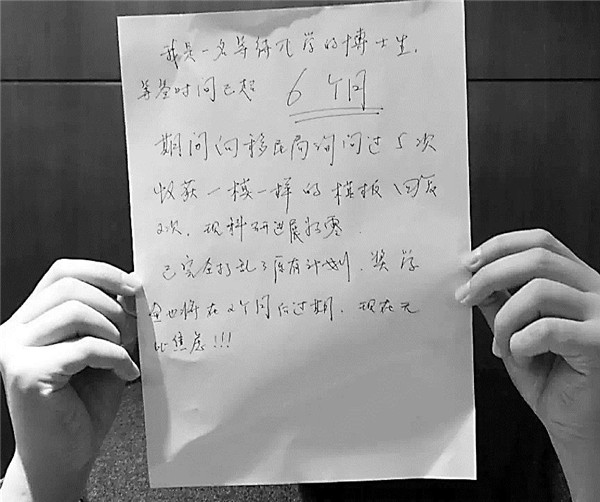 我是一名等待入学的博士生.
等签时间已超 6个月
期间向移民局询问过5次
收获一模一样的模板回复
2次, 现科研进展为零.
已完全打乱了原有计划, 奖学
金也将在2个月后过期, 现在无
比焦虑!!!